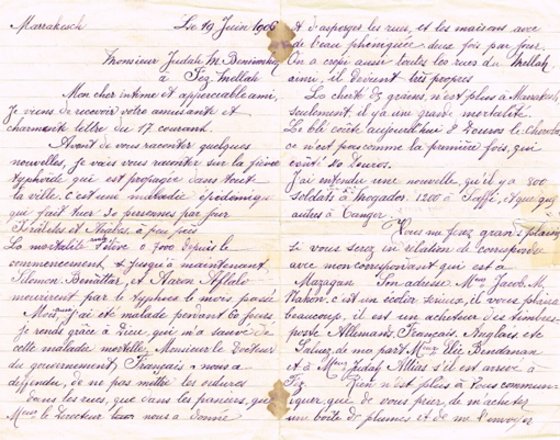 Marrakesch Le 19 Juin 1906
Monsieur Judah M.
à Fez Mellah
Mon cher intime et appreciable ami,
Je viens de recevoir votre amusante et
charmante lettre du 17 courant.
Avant de vous raconter quelques
nouvelles, je vais vous raconter sur la fièvre
typhoïde qui est propagée dans tout
la ville. C'est une maladie épidemique
qui fait tuer 30 personnes par jour
Israëlites et Arabes, à peu près
La mortalité s'élève à 7000 depuis le
commencement, & jusqu'à maintenant,
Silemon Benattar, et Aaron Aflalo
moururent par le typhus le mois passé
Mois, j'ai été malade pendant 60 jours
je rends grâce à Dieu, qui m'a sauvé de
cette malade mortelle. Monsieur le Docteur
du gouvernement Français nous a
deffendu, de ne pas mettre les ordures
dans les rues, que dans les paniers, que
Mr le Directeur nous a donné
& d'asperges les rues, et les maisons avec
de l'eau pheniquée deux fois par jour.
On a crepi aussi toutes les rues du Mellah,
ainsi, il devient très propres
La cherté de grains, n'est plus à Marrakesch
seulement, il y a une grande mortalité.
Le blé coûte aujourd'hui 8 Douros le
ce n'est pas comme la première fois, qui
coûta 20 Douros.
J'ai entendu une nouvelle, qu'il y a 800
soldats à Mogador 1200 à Saffi, et quelq
autres à Tanger.
Vous me ferez grand plaisir
si vous serez en relation de correspondre
avec mon correspondant qui est à
Mazagan Son adresse: Mr Jacob M.
c'est un écolier serieux, il vous plaira
beaucoup, il est un acheteur des timbres-
poste Allemands, Français, Anglais, etc
Saluez de ma part Mr Elie Bendanan
et à Mr Judah Attias s'il est arrivé à
Fez Rien n'est plus à vous commun-
iquer, que de vous prier, de m'achetez
une boîte de plumes et de me l'envoyer